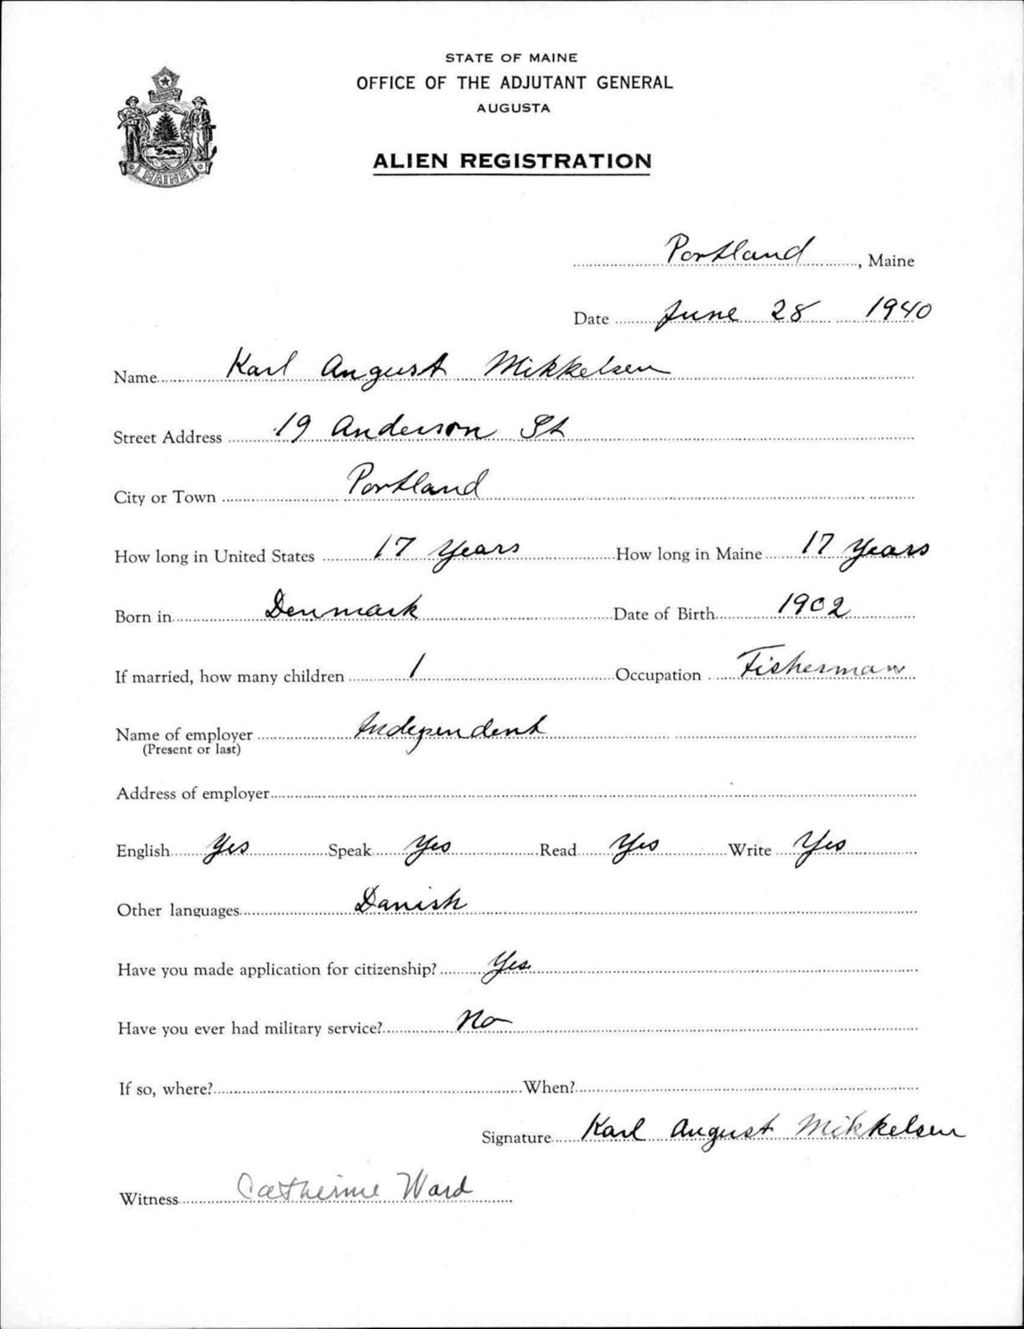 STATE OF MAINE
OFFICE OF THE ADJUTANT GENERAL
AUGUSTA
ALIEN REGISTRATION
MAINE
Portland, Maine
Date June 28 1940
Name Karl August Mikkelsen
Street Address 19 Anderson St
City or Town Portland
How long in United States 17 Years How long in Maine 17 Years
Born in Denmark Date of Birth 1902
If married, how many children 1 Occupation Fisherman
Name of employer Independent
(Present or last)
Address of employer
English Yes Speak Yes Read Yes Write Yes
Other languages Danish
Have you made application for citizenship? Yes
Have you ever had military service? No
If so, where? When?
Signature Karl August Mikkelsen
Witness Catherine Ward